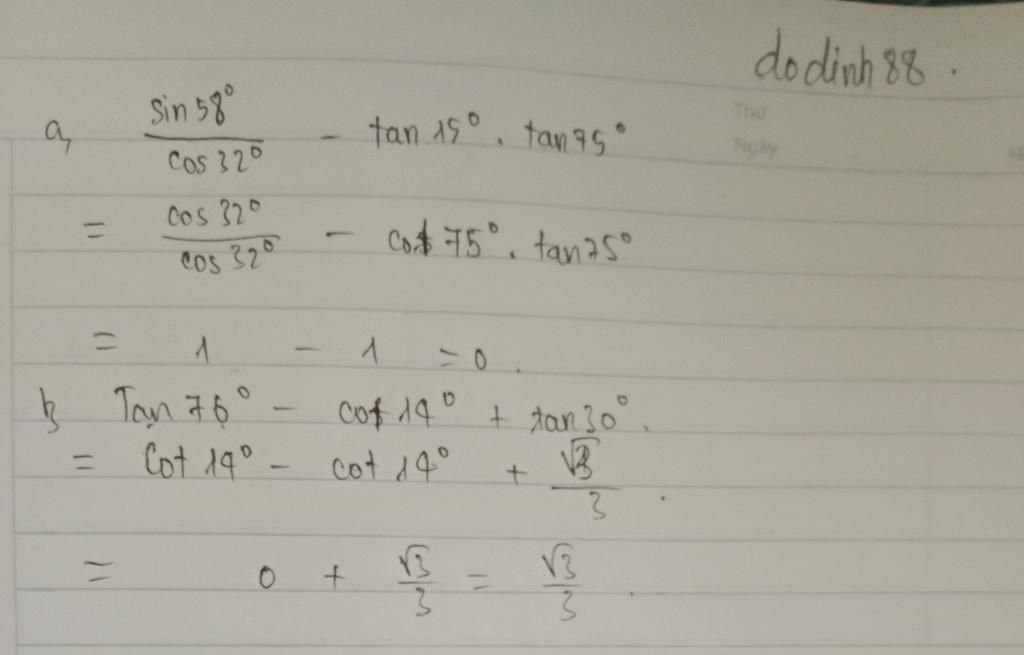 dodinh 88.
Thứ
a, sin 58° / cos 32° - tan 15° . tan 75°
Ngày
= cos 32° / cos 32° - cot 75° . tan 75°
= 1 - 1 = 0.
b Tan 76° - cot 14° + tan 30°.
= Cot 14° - cot 14° + √3 / 3.
= 0 + √3 / 3 = √3 / 3.